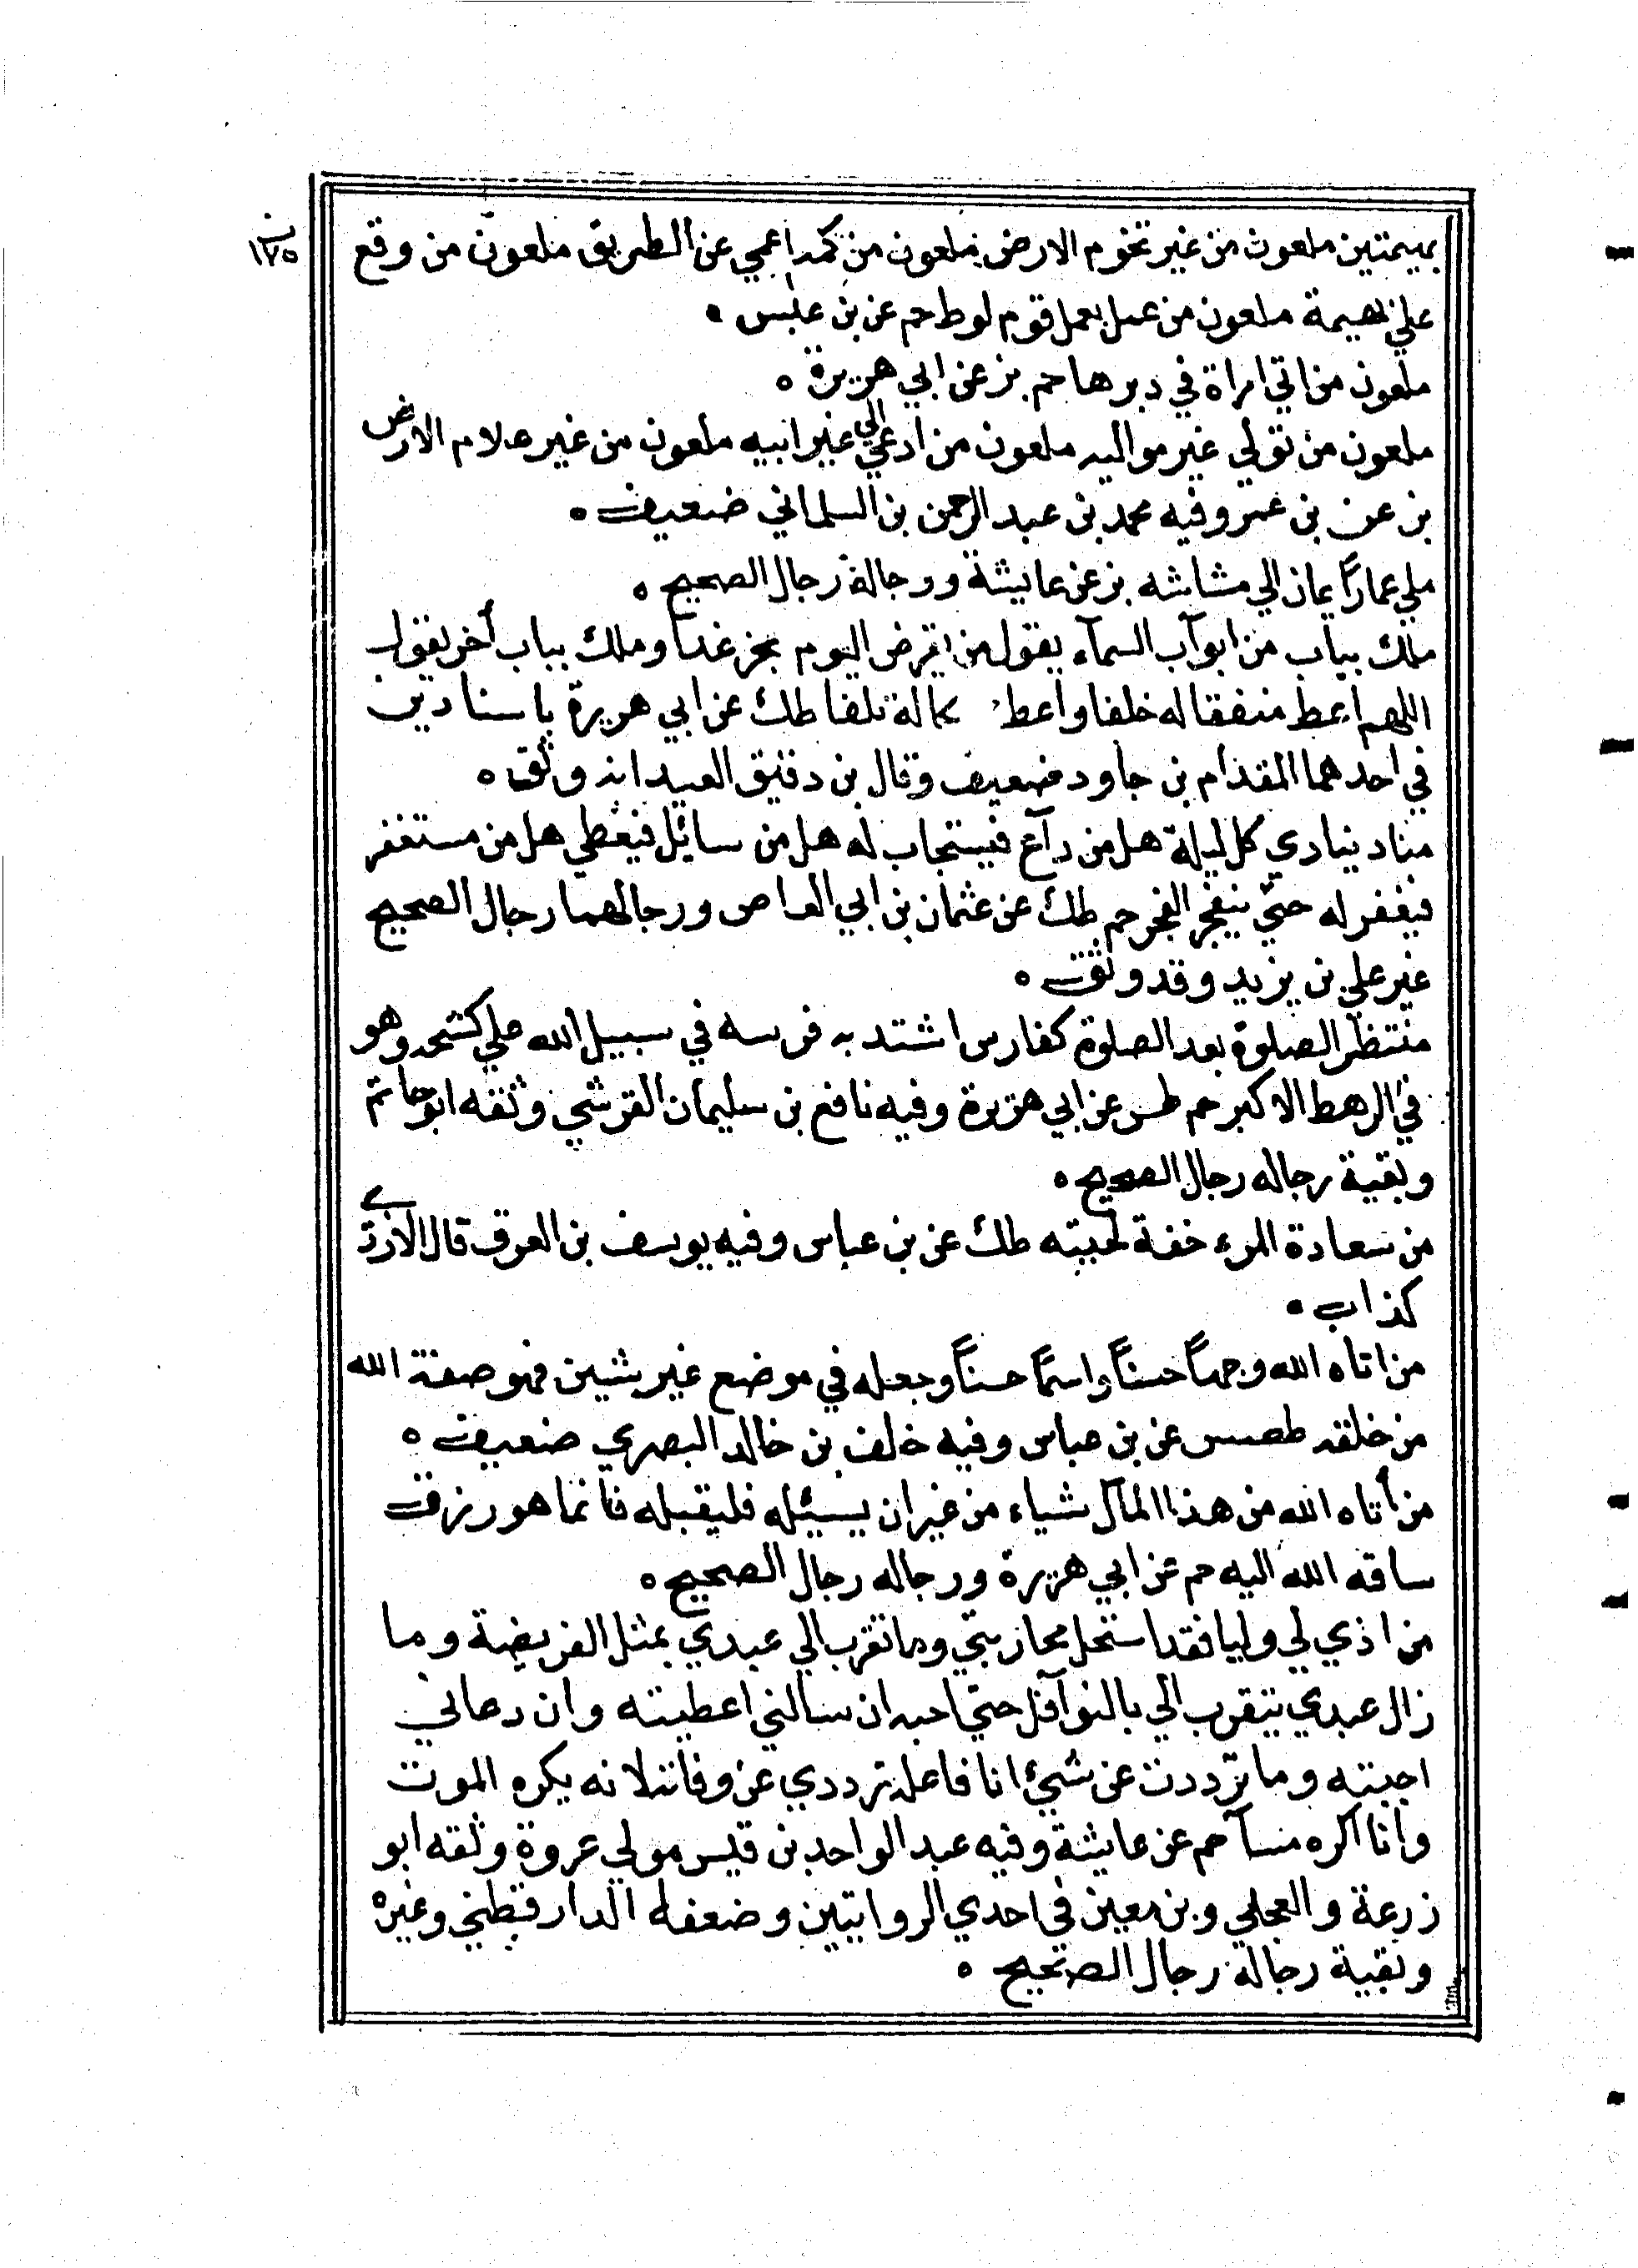 ١٧٥
بهيمتين ملعون من غير تخوم الارض ملعون من كمه اعمي عن الطريق ملعون من وقع
علي بهيمة ملعون من عمل بعمل قوم لوط حم عن بن عبس ه
ملعون من اتي امراة في دبرها حم بز عن ابي هريرة ه
ملعون من تولي غير مواليه ملعون من ادعي الي غير ابيه ملعون من غير علام الارض
بز عن بن عمر وفيه محمد بن عبد الرحمن بن السلماني ضعيف ه
ملي عمارا يمان الي مشاشه بز عن عايشة ورجاله رجال الصحيح ه
ملك بباب من ابوآب السمآء يقول من يقرض اليوم يجز غدا وملك بباب أخر يقول
اللهم اعط منفقا له خلفا واعط تلفا طك عن ابي هريرة باسنادين
في احدهما المقدام بن جاود ضعيف وقال بن دقيق العيد انه وثق ه
مناد ينادي كل ليلة هل من دآع فيستجاب له هل من سائل فيعطي هل من مستغفر
فيغفر له حتي ينفجر الفجر حم طك عن عثمان بن ابي العاص ورجالهما رجال الصحيح
غير علي بن يزيد وقد وثق ه
منتظر الصلوة بعد الصلوة كفارس اشتد به فرسه في سبيل الله علي كشحه وهو
في الرهط الاكبر حم طس عن ابي هريرة وفيه نافع بن سليمان القرشي وثقه ابو حاتم
وبقية رجاله رجال الصحيح ه
من سعادة المرء خفة لحيته طك عن بن عباس وفيه يوسف بن الغرق قال الازدي
كذاب ه
من اتاه الله وجها حسناً واسمًا حسناً وجعله في موضع غير شين فهو صفة الله
من خلقه طصس عن بن عباس وفيه خلف بن خالد البصري ضعيف ه
من أتاه الله من هذا المال شياء من غير ان يسئله فليقبله فانما هو رزق
ساقه الله اليه حم عن ابي هريرة ورجاله رجال الصحيح ه
من اذي لي وليا فقد استحل محاربتي وما تقرب الي عبدي بمثل الفريضة وما
زال عبدي يتقرب الي بالنوآفل حتي احبه ان سالني اعطيته وان دعاني
اجبته وما ترددت عن شيئ انا فاعله ترددي عن وفاته لانه يكره الموت
وانا اكره مسآ حم عن عايشة وفيه عبد الواحد بن قيس مولي عروة وثقه ابو
زرعة والعجلي وبن معين في احدي الروايتين وضعفه الدارقطني وغيره
وبقية رجاله رجال الصحيح ه